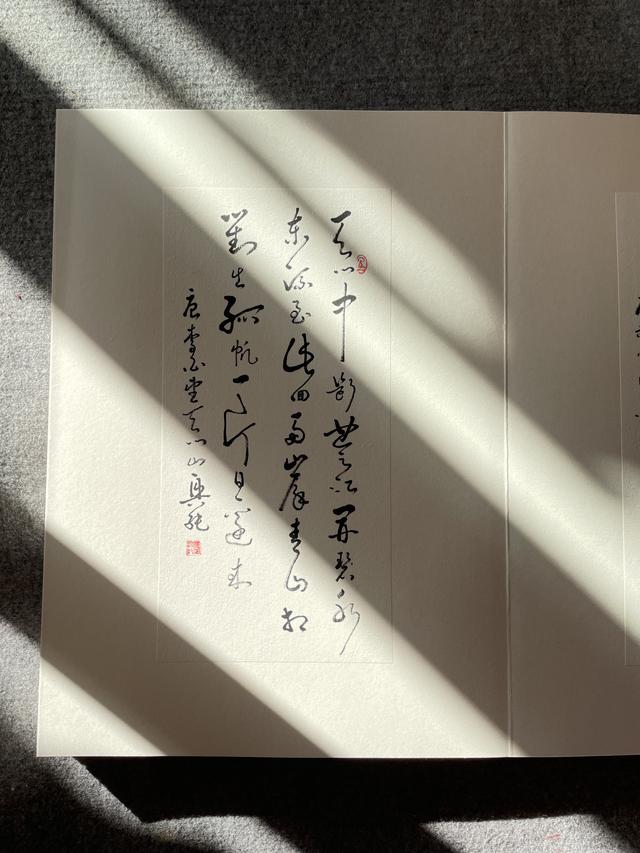 天门中断楚江開碧水
東流至此回两岸青山相
對出孤帆一片日邊来
唐李白望天门山